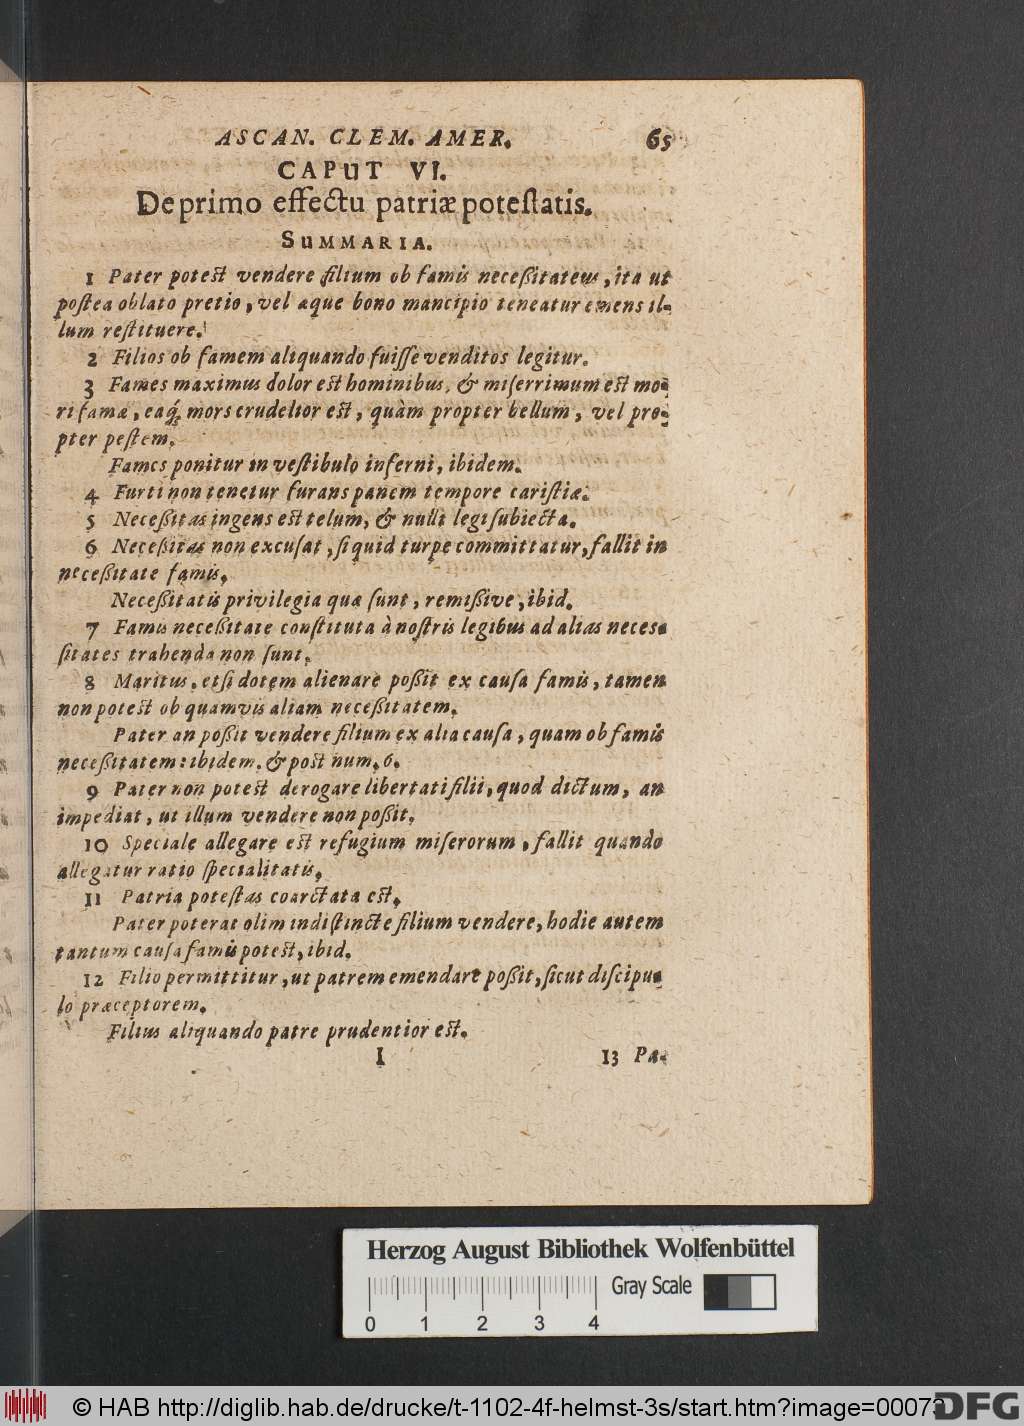 ASCAN. CLEM. AMER. 65
CAPUT VI.
De primo effectu patriæ potestatis.
SUMMARIA.
1 Pater potest vendere filium ob famis neceßitatem, ita ut
postea oblato pretio, vel æque bono mancipio teneatur emens il-
lum restituere.
2 Filios ob famem aliquando fuiſſe venditos legitur.
3 Fames maximus dolor est hominibus, & miſerrimum est mo-
ri fame, eaq; mors crudelior est, quàm propter bellum, vel pro-
pter peſtem.
Fames ponitur in veſtibulo inferni, ibidem.
4 Furti non tenetur furans panem tempore cariſtiæ.
5 Neceßitas ingens est telum, & nulli legi ſubiecta.
6 Neceßitas non excuſat, ſi quid turpe committatur, fallit in
neceßitate famis.
Neceßitatis privilegia quæ ſunt, remißive, ibid.
7 Famis neceßitate conſtituta à noſtris legibus ad alias neces-
ſitates trahenda non ſunt.
8 Maritus, etſi dotem alienare poßit ex cauſa famis, tamen
non potest ob quamvis aliam neceßitatem.
Pater an poßit vendere filium ex alia cauſa, quam ob famis
neceßitatem: ibidem. & post num. 6.
9 Pater non potest derogare libertati filii, quod dictum, an
impediat, ut illum vendere non poßit.
10 Speciale allegare est refugium miſerorum, fallit quando
allegatur ratio ſpecialitatis.
11 Patria poteſtas coarctata est.
Pater poterat olim indiſtincte filium vendere, hodie autem
tantum cauſa famis potest, ibid.
12 Filio permittitur, ut patrem emendare poßit, ſicut diſcipu-
lo præceptorem.
Filius aliquando patre prudentior est.
I 13 Pa-
Herzog August Bibliothek Wolfenbüttel
Gray Scale
0 1 2 3 4
© HAB http://diglib.hab.de/drucke/t-1102-4f-helmst-3s/start.htm?image=00073
DFG